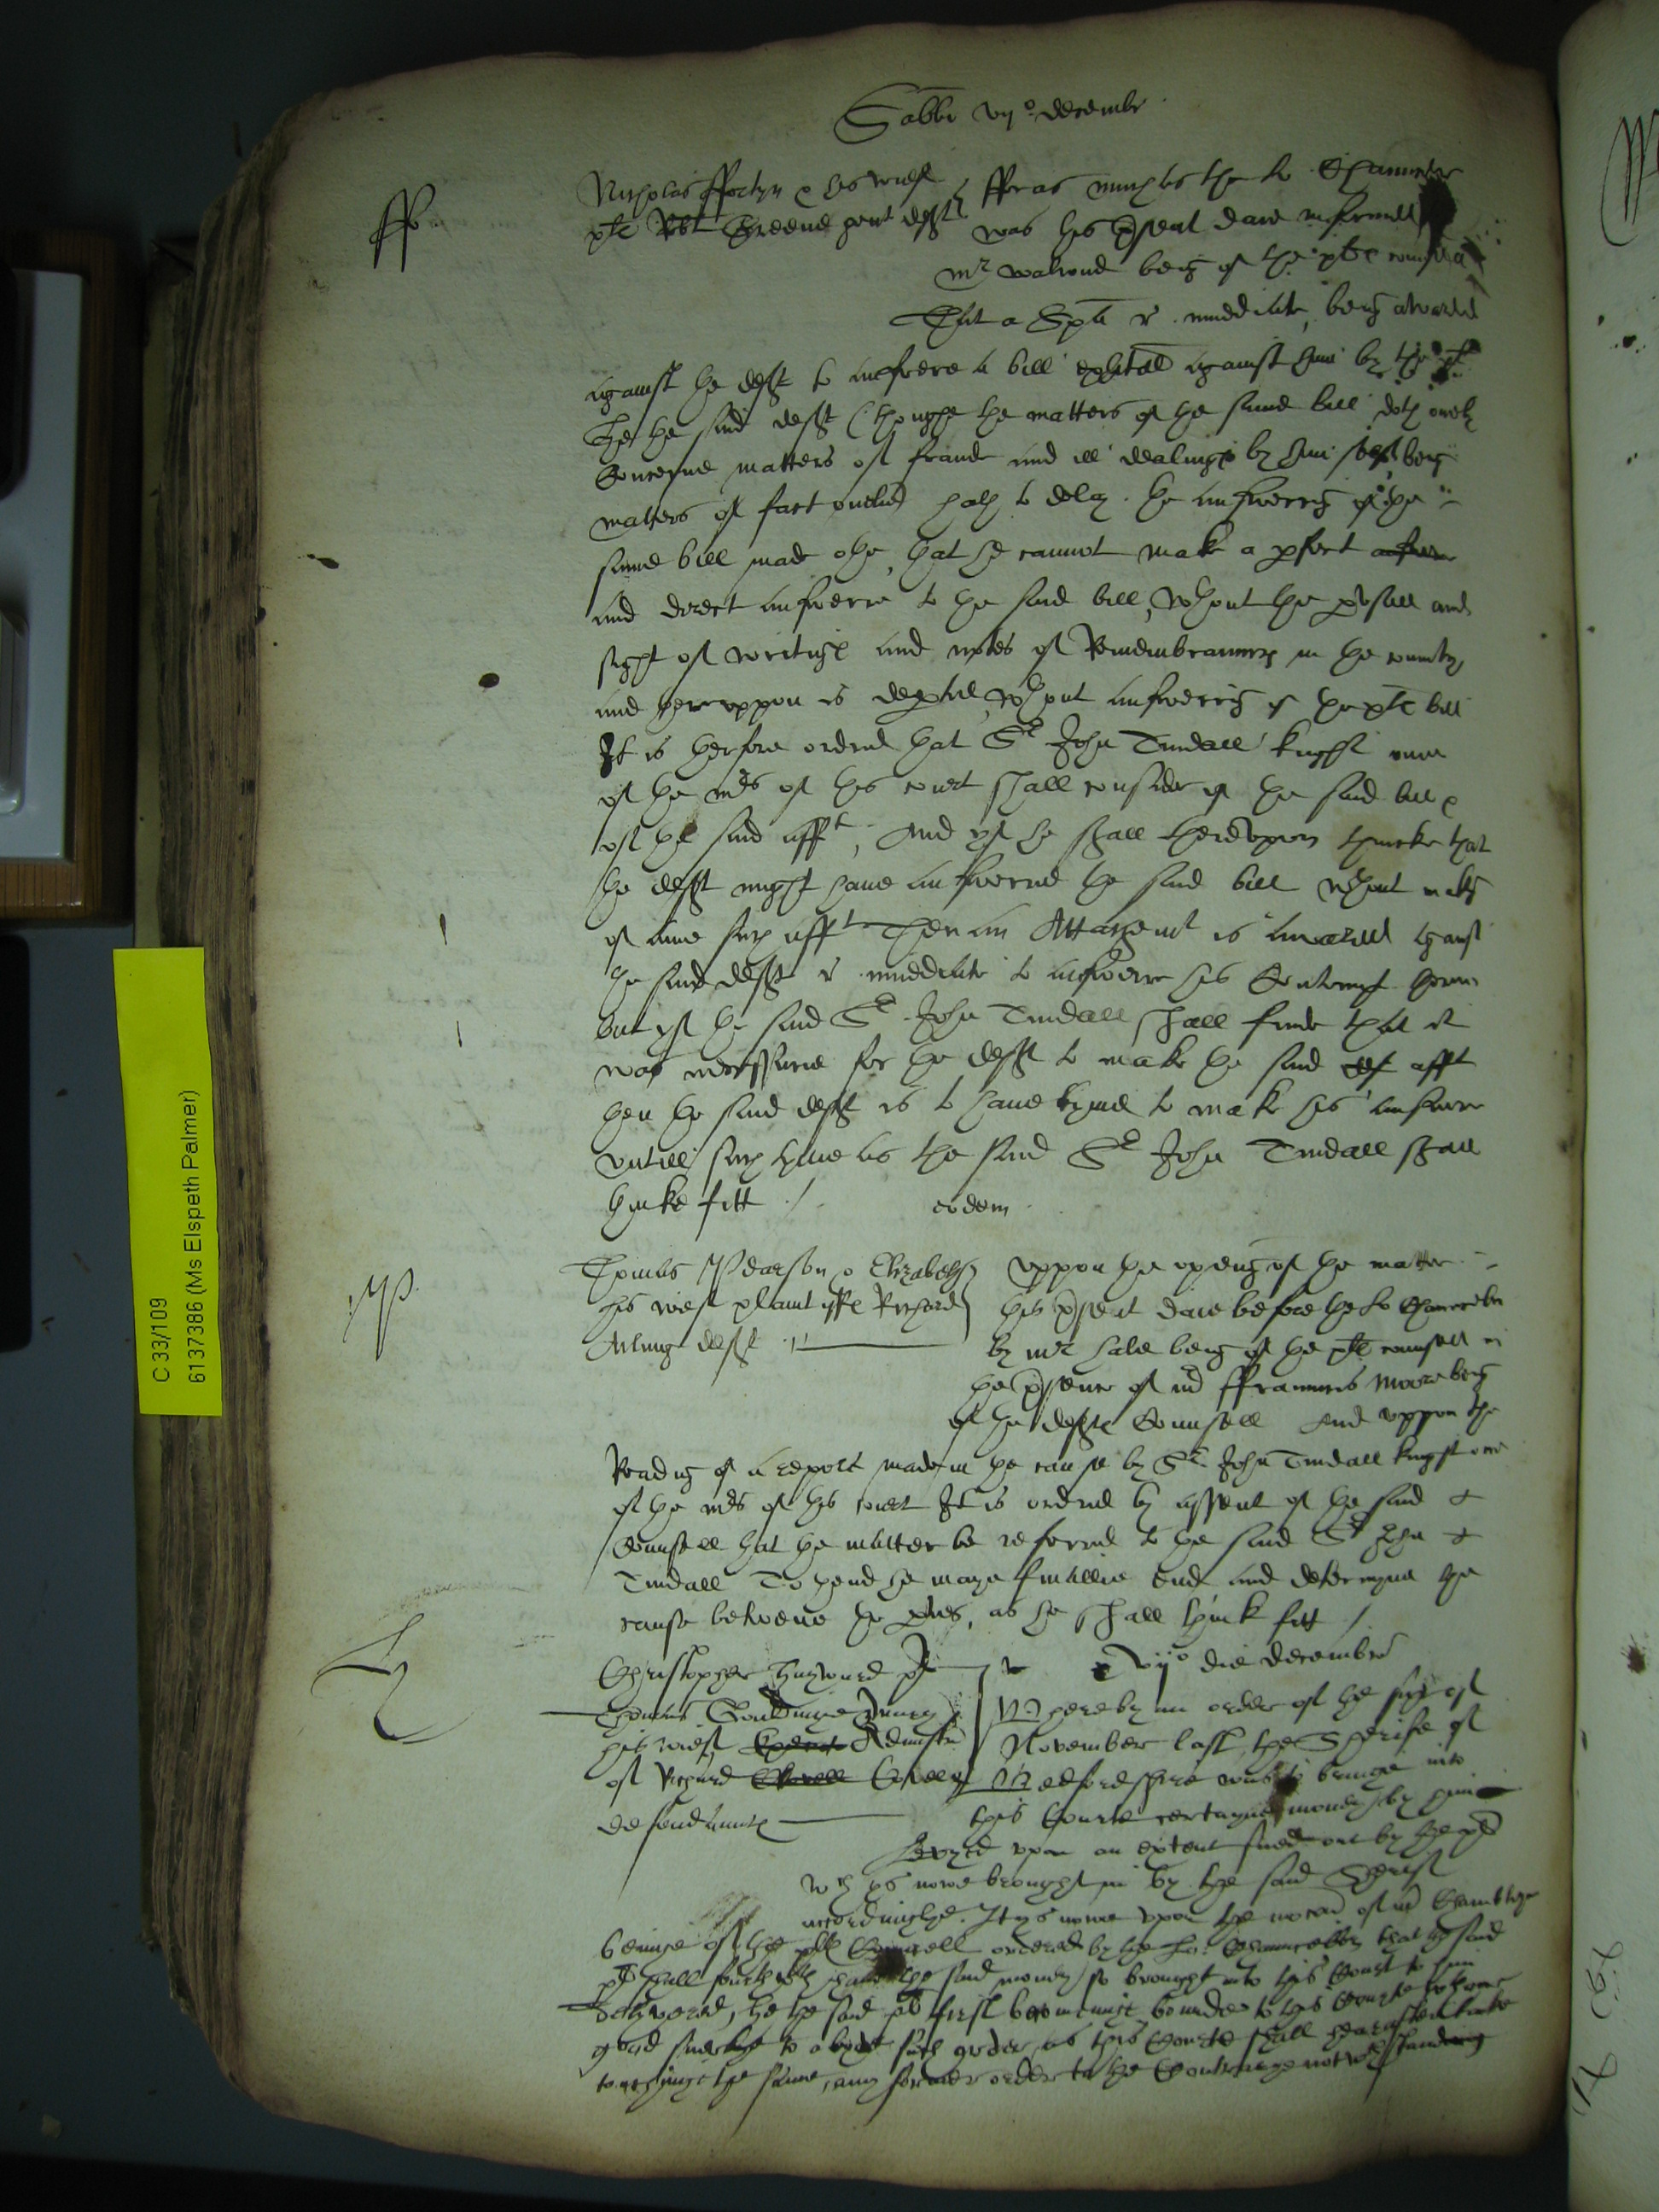 Sabbi vijo decembr
ff
Nicholas ffortyn & his wief
plt Robt Greene gent deft
ffor as much as the lo Chauncelor
was this psent daie informed
mr walrond being of the pltes counsell
That a Spa r immediate, being awarded
against the deft to answere a bill exhited against him by the plt
the said deft (thoughe the matters of the same bill doth onely
Concerne matters of fraude and ill dealinge by him self being
matters of fact onelie) hath to delay the answering of the
same bill made othe, that he cannot make a pfect answere
and direct answere to the said bill, wthout the pusall and
sight of writinge and notes of Remembraunces in the countrey
and hereuppon is depted wthout answering of the pltes bill
It is therfore ordred that Sr John Tindall knight one
of the mrs of this court shall consider of the said bill &
of the said afft, And yf he shall thereupon thincke that
the deft might have answered the said bill wthout making
of anie such afft Then an Attachemt is awarded against
the said deft r immediate to answere his Contempt therin
but yf the said Sr John Tindall shall finde that it
was necessarie for the deft to make the said def afft
then the said deft is to have tyme to make his answere
untill such tyme as the said Sr John Tindall shall
thinke fitt /
eodem
P
Thomas Pearson & Elizabeth
his wief plaintiffe Richard
deft
Uppon the opening of the matter
this psent daie before the lo Chauncelor
by mr hale being of the plte counsell in
the psence of mr ffrauncis Moore being
of the defte Counsell And uppon the
Reading of a report made in the cause by Sr John Tindall knight one
of the mrs of this court It is ordred by assent of the said
Counsell that the matter be referred to the said Sr John
Tindall To thend he maye finallie end and determyne the
cause betwene the pties, as he shall think fitt /
Christopher hayward plt
Thomas
his wief Admistr
of Richard
defendaunte
vijo die decembr
Whereby an order of the first of
November last, the Sherife of
Bedfordshire was to bringe into
this Courte certayne money by him
levyed upon an extent sued out by the plt
wch is nowe brought in by the said Sherif
accordinglye. It is nowe upon the mocon of mr
beinge of the plte Councell ordered by the lo: Chauncellor that the said
plt shall fourthwth have the said money so brought into this Court to him
delyvered, he the said plt first becominge bounde to this Courte wth some
good suertye to abyde such order as this Courte shall hereafter make
touchinge the same, any former order to the Contrarye notwthstanding
C 33/109
6137386 (Ms Elspeth Palmer)